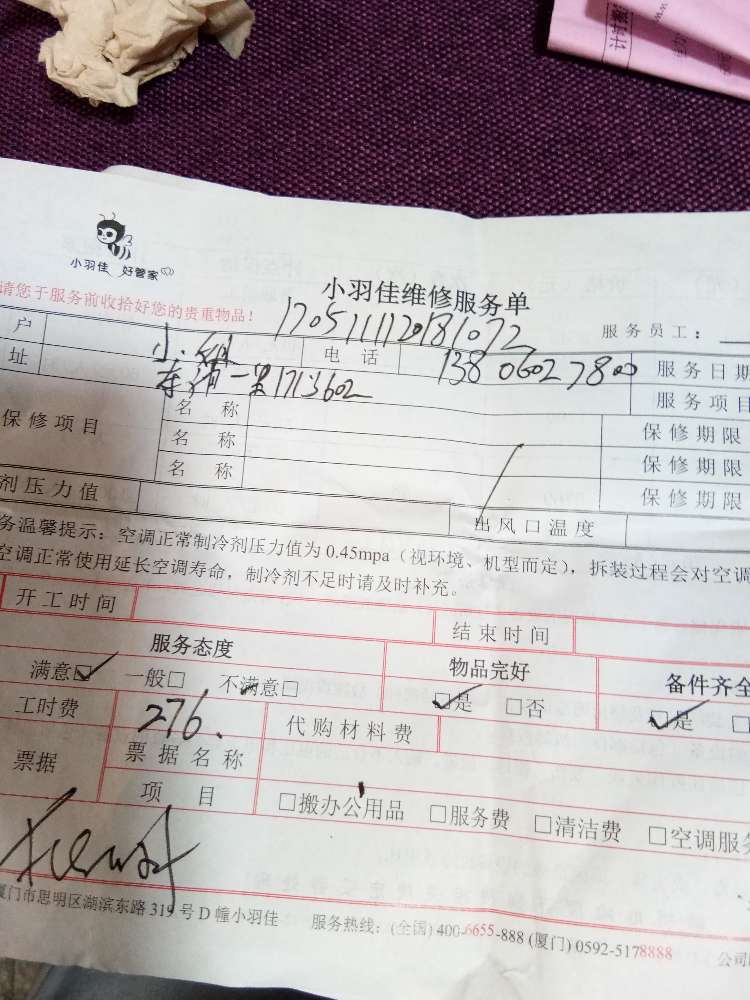 计时搬
小羽佳 好管家
请您于服务前收拾好您的贵重物品!
小羽佳维修服务单
1705111120181072
服务员工:
户
电话
13806027800
服务日期
址
1713602
服务项目
保修项目
名称
保修期限
名称
保修期限
名称
保修期限
剂压力值
出风口温度
务温馨提示:空调正常制冷剂压力值为0.45mpa(视环境、机型而定),拆装过程会对空调
空调正常使用延长空调寿命,制冷剂不足时请及时补充。
开工时间
结束时间
服务态度
物品完好
备件齐全
满意☑ 一般□ 不满意□
☑是 □否
☑是 □
工时费
276.
代购材料费
票据
票据名称
项目
□搬办公用品 □服务费 □清洁费 □空调服务
厦门市思明区湖滨东路319号D幢小羽佳 服务热线:(全国)400-6655-888 (厦门)0592-5178888 公司